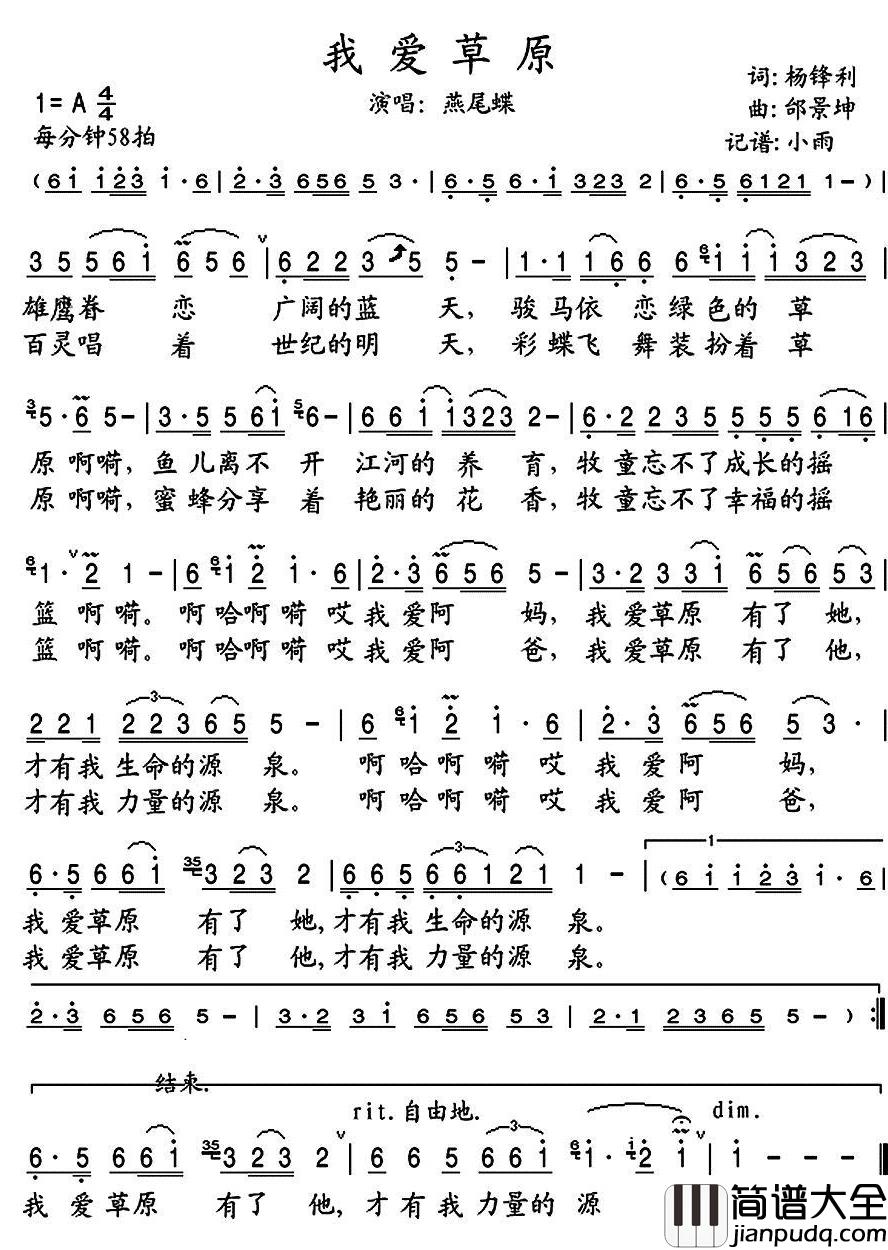 我爱草原
词: 杨锋利
1= A 4/4
演唱: 燕尾蝶
曲: 邰景坤
每分钟58拍
记谱: 小雨
( 6i i23 i·6 | 2·3 656 5 3· | 6·5 6·i 323 2 | 6·5 6121 1- ) |
3 5 5 6 i 6 5 6 | 6 2 2 3 5 5 - | 1·1 1 6 6 6 6 i i i 3 2 3 |
雄鹰眷 恋 广阔的蓝 天, 骏马依 恋绿色的 草
百灵唱 着 世纪的明 天, 彩蝶飞 舞装扮着 草
3 5·6 5- | 3·5 5 6i 5 6- | 6 6 i i323 2- | 6·2 2 3 5 5 5 5 6 16 |
原 啊嗬, 鱼儿离不 开 江河的 养 育, 牧童忘不了成长的摇
原 啊嗬, 蜜蜂分享 着 艳丽的 花 香, 牧童忘不了幸福的摇
6 1·2 1- | 6 6 i 2 i·6 | 2·3 6 5 6 5- | 3·2 3 3 i 6 5 6 5 3 |
篮 啊嗬。 啊哈啊嗬哎我爱阿 妈, 我爱草原 有了 她,
篮 啊嗬。 啊哈啊嗬哎我爱阿 爸, 我爱草原 有了 他,
2 2 1 3 2 2 3 6 5 5 - | 6 6 i 2 i·6 | 2·3 6 5 6 5 3· |
才有我 生命的源 泉。 啊哈啊嗬哎我爱阿 妈,
才有我 力量的源 泉。 啊哈啊嗬哎我爱阿 爸,
1
6·5 6 6 i 35 3 2 3 2 | 6 6 5 3 6 6 1 2 1 1 - | ( 6 i i 2 3 i·6 |
我爱草原 有了 她, 才有我 生命的源 泉。
我爱草原 有了 他, 才有我 力量的源 泉。
2·3 6 5 6 5 - | 3·2 3 i 6 5 6 5 3 | 2·1 2 3 6 5 5 - ) :||
结束.
rit. 自由地. dim.
6·5 6 6 i 35 3 2 3 2 | 6 6 5 3 6 6 i 6 i· i 2 i | i - - - ||
我爱草原 有了 他, 才有我力量的 源
简谱大全
jianpudq.com